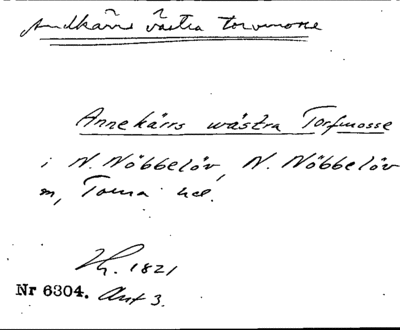 Andkärrs västra torvmosse
Annekärrs wästra Torfmosse
i N. Nöbbelöv, N. Nöbbelöv
sn, Torna hd.
1821
Nr 6304. Akt 3.